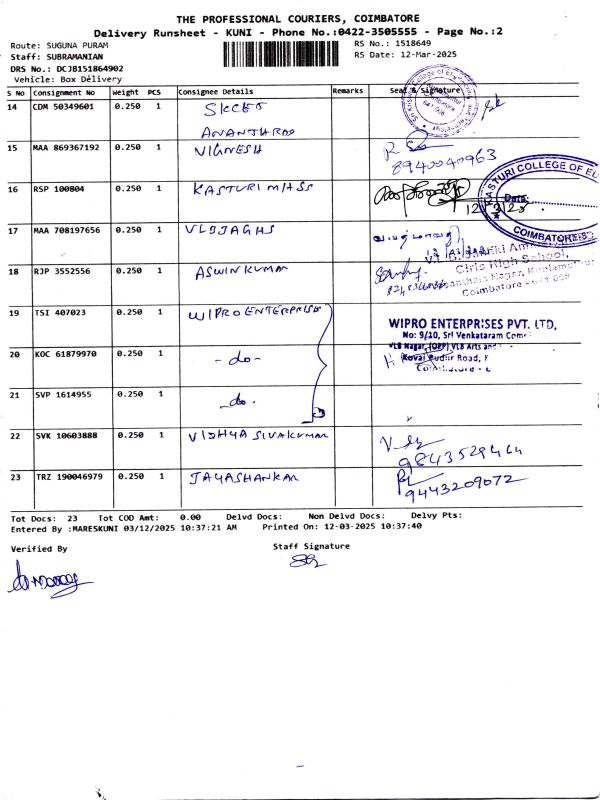 THE PROFESSIONAL COURIERS, COIMBATORE
Delivery Runsheet - KUNI - Phone No.:0422-3505555 - Page No.:2
Route: SUGUNA PURAM RS No.: 1518649
Staff: SUBRAMANIAN RS Date: 12-Mar-2025
DRS No.: DCJB151864902
Vehicle: Box Delivery
S No Consignment No Weight PCS Consignee Details Remarks Seal & Signature
14 CDM 50349601 0.250 1 SKCET
ANANTHRAO
15 MAA 869367192 0.250 1 VIGNESH
8940040963
16 RSP 100804 0.250 1 KASTURI M/HSS
KASTURI COLLEGE OF
Date:
12/3/25
COIMBATORE
17 MAA 708197656 0.250 1 VLBJAGHS
18 RJP 3552556 0.250 1 ASWINKUMAR
Girls High School,
Coimbatore
19 TSI 407023 0.250 1 WIPRO ENTERPRISES
WIPRO ENTERPRISES PVT. LTD,
No: 9/10, Sri Venkataram
VLB Nagar, (OPP) VLB Arts and
Kovai Pudur Road,
20 KOC 61879970 0.250 1 -do-
21 SVP 1614955 0.250 1 -do-
22 SVK 10603888 0.250 1 VIDHYA SIVAKUMAR
9843529464
23 TRZ 190046979 0.250 1 JAYASHANKAR
9443209072
Tot Docs: 23 Tot COD Amt: 0.00 Delvd Docs: Non Delvd Docs: Delvy Pts:
Entered By :MARESKUNI 03/12/2025 10:37:21 AM Printed On: 12-03-2025 10:37:40
Verified By Staff Signature